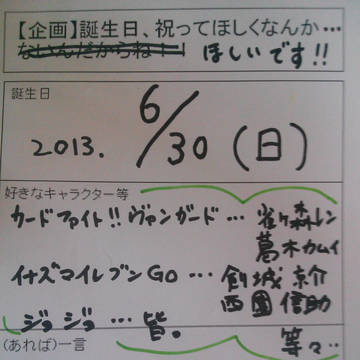 【企画】誕生日、祝ってほしくなんか…
ないんだからね！！ ほしいです!!
誕生日
6/30
2013. (日)
好きなキャラクター等
カードファイト!! ヴァンガード … 雀ヶ森レン
葛木カムイ
イナズマイレブンGO … 剣城京介
西園信助
ジョジョ … 皆。
等々…
(あれば)一言